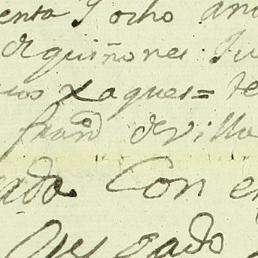 enta y ocho an
de quiñones Ju
uos xaques = te
fran.do de villa
ada Con e
Quesada